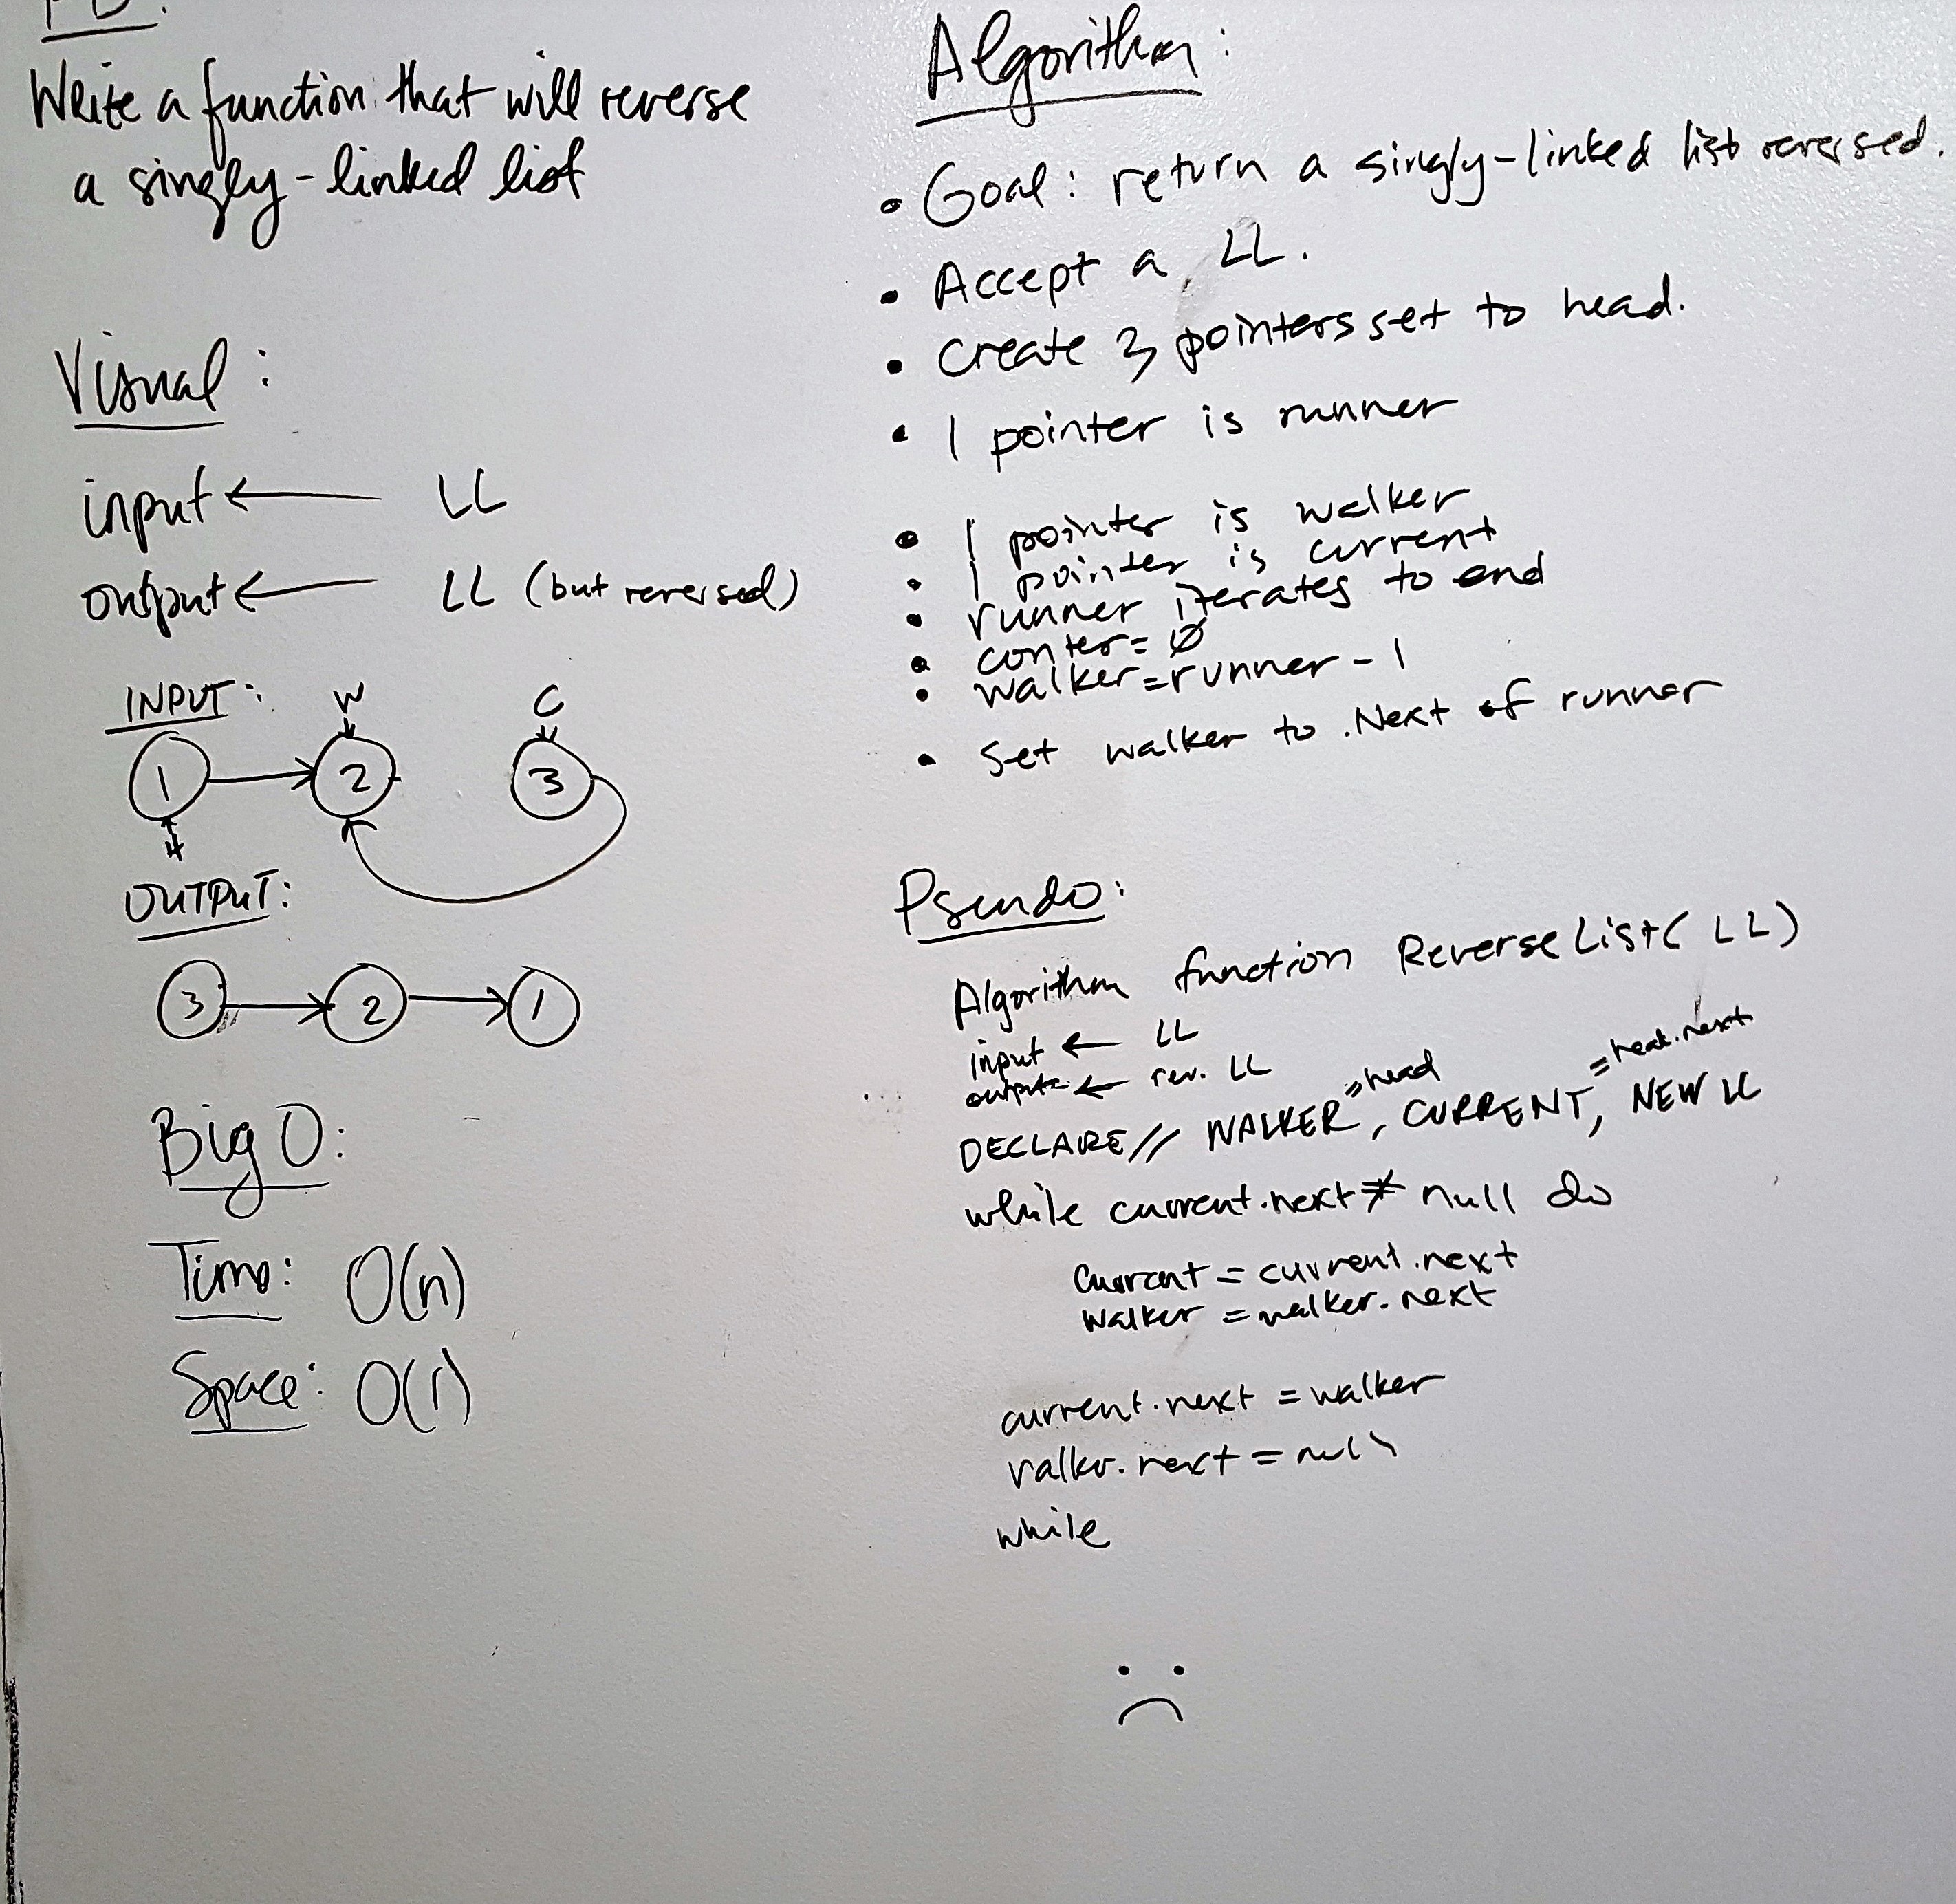 PD:
Write a function that will reverse
a singley-linked list
Visual:
input ← LL
output ← LL (but reversed)
INPUT:
W
C
1
2
3
H
OUTPUT:
3
2
1
Big O:
Time: O(n)
Space: O(1)
Algorithm:
• Goal: return a singly-linked list reversed.
• Accept a LL.
• Create 3 pointers set to head.
• 1 pointer is runner
• 1 pointer is walker
• 1 pointer is current
• runner iterates to end
• conter=Ø
• walker=runner-1
• Set walker to .Next of runner
Pseudo:
Algorithm function ReverseList(LL)
input ← LL
output ← rev. LL
=head
=head.next
DECLARE// WALKER, CURRENT, NEW LL
while current.next ≠ null do
Current = current.next
walker = walker.next
current.next = walker
walker.next = null
while